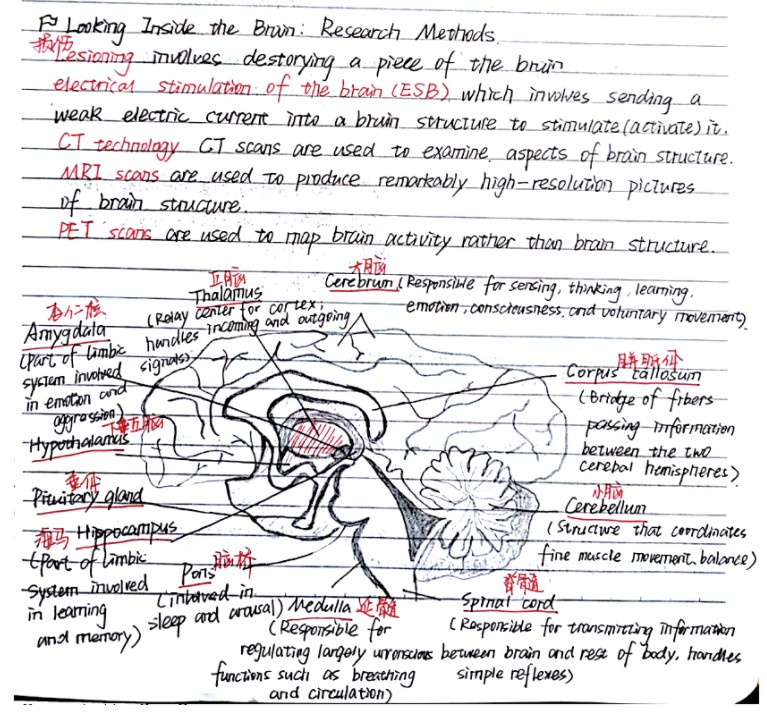 Looking Inside the Brain: Research Methods.
损伤
Lesioning involves destorying a piece of the brain
electrical stimulation of the brain (ESB) which involves sending a
weak electric current into a brain structure to stimulate (activate) it.
CT technology CT scans are used to examine aspects of brain structure.
MRI scans are used to produce remarkably high-resolution pictures
of brain structure.
PET scans are used to map brain activity rather than brain structure.
丘脑
Thalamus
(Relay center for cortex;
handles incoming and outgoing
signals)
大脑
Cerebrum (Responsible for sensing, thinking, learning,
emotion, consciousness, and voluntary movement).
杏仁核
Amygdala
(part of limbic
system involved
in emotion and
aggression)
下丘脑
Hypothalamus
垂体
Pituitary gland
海马 Hippocampus
(part of limbic
system involved
in learning
and memory)
脑桥
Pons
(involved in
sleep and arousal)
Medulla 延髓
(Responsible for
regulating largely unconscious
functions such as breathing
and circulation)
胼胝体
Corpus callosum
(Bridge of fibers
passing information
between the two
cerebral hemispheres)
小脑
Cerebellum
(Structure that coordinates
fine muscle movement, balance)
脊髓
Spinal cord
(Responsible for transmitting information
between brain and rest of body, handles
simple reflexes)